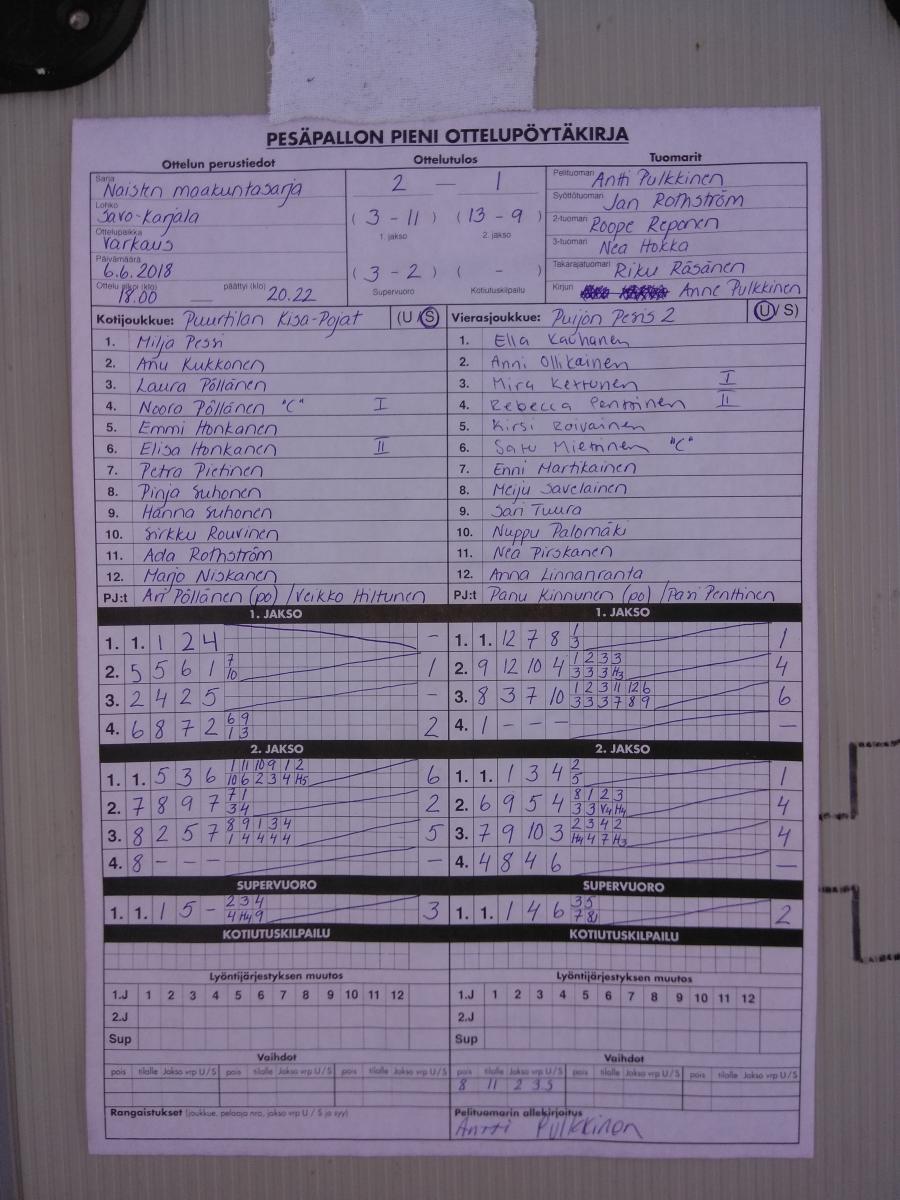 PESÄPALLON PIENI OTTELUPÖYTÄKIRJA
Ottelun perustiedot Ottelutulos Tuomarit
Sarja Naisten maakuntasarja
Lohko Savo-Karjala
Ottelupaikka Varkaus
Päivämäärä 6.6.2018
Ottelu alkoi (klo) 18.00 päättyi (klo) 20.22
2 — 1
( 3 - 11 ) ( 13 - 9 )
1. jakso 2. jakso
( 3 - 2 ) ( - )
Supervuoro Kotiutuskilpailu
Pelituomari Antti Pulkkinen
Syöttötuomari Jan Rothström
2-tuomari Roope Reponen
3-tuomari Nea Hokka
Takarajatuomari Riku Räsänen
Kirjuri Anne Pulkkinen
Kotijoukkue: Puurtilan Kisa-Pojat (U/S)
1. Milja Pessi
2. Anu Kukkonen
3. Laura Pöllänen
4. Noora Pöllänen "C" I
5. Emmi Honkanen
6. Elisa Honkanen II
7. Petra Pietinen
8. Pinja Suhonen
9. Hanna Suhonen
10. Sirkku Rouvinen
11. Ada Rothström
12. Marjo Niskanen
PJ:t Ari Pöllänen (po) / Veikko Hiltunen
Vierasjoukkue: Puijon Pesis 2 (U/S)
1. Ella Kauhanen
2. Anni Ollikainen
3. Mira Kettunen I
4. Rebecca Penttinen II
5. Kirsi Roivainen
6. Satu Miettinen "C"
7. Enni Martikainen
8. Meiju Savelainen
9. Sari Tuura
10. Nuppu Palomäki
11. Nea Pirskanen
12. Anna Linnanranta
PJ:t Panu Kinnunen (po) / Pasi Penttinen
1. JAKSO
1. 1. 1 2 4 -
2. 5 5 6 1 7 10 1
3. 2 4 2 5 -
4. 6 8 7 2 6 9 1 3 2
1. JAKSO
1. 1. 12 7 8 1 3 1
2. 9 12 10 4 1 2 3 3 3 3 3 H3 4
3. 8 3 7 10 1 2 3 11 12 6 3 3 3 7 8 9 6
4. 1 - - - —
2. JAKSO
1. 1. 5 3 6 1 11 10 9 1 2 10 6 2 3 4 H5 6
2. 7 8 9 7 7 1 3 4 2
3. 8 2 5 7 8 9 1 3 4 1 4 4 4 4 5
4. 8 - - - —
2. JAKSO
1. 1. 1 3 4 2 5 1
2. 6 9 5 4 8 1 2 3 3 3 V4 H4 4
3. 7 9 10 3 2 3 4 2 H4 4 7 H3 4
4. 4 8 4 6 —
SUPERVUORO
1. 1. 1 5 - 2 3 4 4 H4 9 3
SUPERVUORO
1. 1. 1 4 6 3 5 7 2
KOTIUTUSKILPAILU
KOTIUTUSKILPAILU
Lyöntijärjestyksen muutos
1.J 1 2 3 4 5 6 7 8 9 10 11 12
2.J
Sup
Lyöntijärjestyksen muutos
1.J 1 2 3 4 5 6 7 8 9 10 11 12
2.J
Sup
Vaihdot
pois tilalle Jakso vrp U/S pois tilalle Jakso vrp U/S pois tilalle Jakso vrp U/S
Vaihdot
pois tilalle Jakso vrp U/S pois tilalle Jakso vrp U/S pois tilalle Jakso vrp U/S
8 11 2 3 S
Rangaistukset (joukkue, pelaaja nro, jakso vrp U / S ja syy)
Pelituomarin allekirjoitus
Antti Pulkkinen